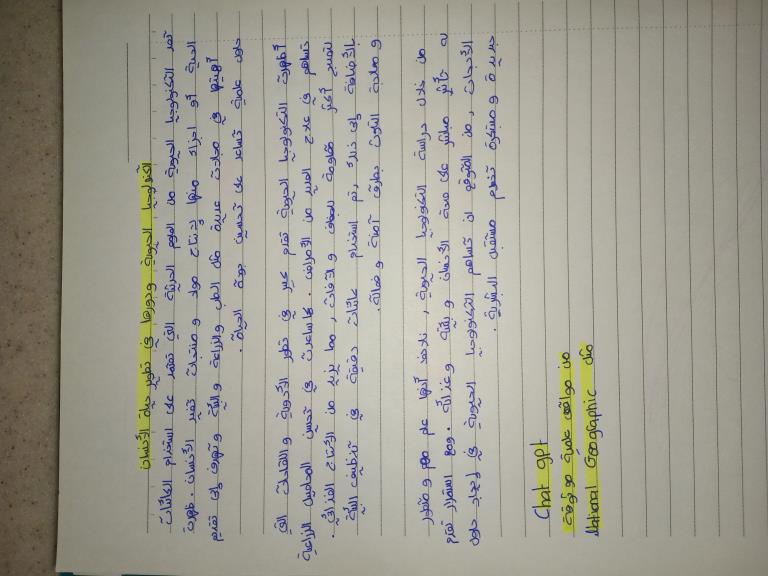 التكنولوجيا الحيوية ودورها في تطوير حياة الإنسان
تعد التكنولوجيا الحيوية من العلوم الحديثة التي تعتمد على استخدام الكائنات
الحية أو اجزاء منها لإنتاج مواد و منتجات تفيد الإنسان. ظهرت
أهميتها في مجالات عديدة مثل الطب والزراعة و البيئة و تهدف إلى تقديم
حلول علمية تساعد على تحسين جودة الحياة.
أظهرت التكنولوجيا الحيوية تقدم كبير في تطوير الأدوية و اللقاحات التي
تساهم في علاج العديد من الأمراض. كما ساعدت في تحسين المحاصيل الزراعية
لتصبح أكثر مقاومة للجفاف و الآفات, مما يزيد من الإنتاج الغذائي.
بالإضافة إلى ذلك, تم استخدام كائنات دقيقة في تنظيف البيئة
و معالجة التلوث بطرق آمنة و فعالة.
من خلال دراسة التكنولوجيا الحيوية, نلاحظ أنها علم مهم و متطور
له تأثير مباشر على صحة الإنسان و بيئته و غذائه. ومع استمرار تقدم
الأبحاث, من المتوقع ان تساهم التكنولوجيا الحيوية في إيجاد حلول
جديدة و مبتكرة تخدم مستقبل البشرية.
Chat gpt
من مواقع علمية موثوقة
مثل National Geographic